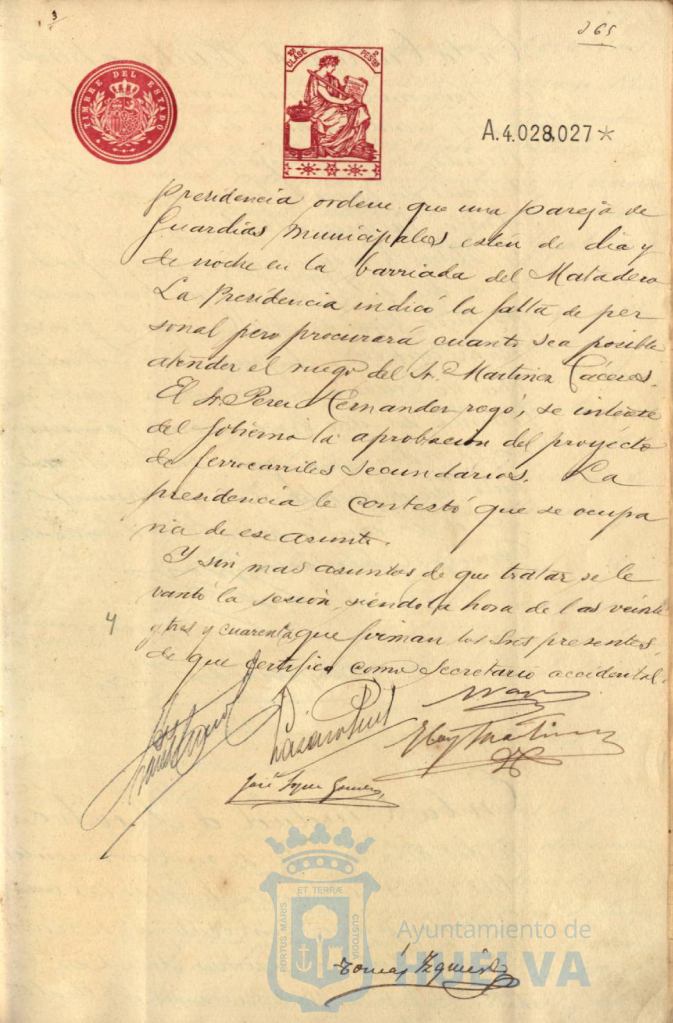 3
265
TIMBRE DEL ESTADO
10ª CLASE 2 PESTAS
A.4.028,027*
presidencia ordene que una pareja de
Guardias municipales esten de dia y
de noche en la barriada del Matadero
La Presidencia indicó la falta de per
sonal pero procurará cuanto sea posible
atender el ruego del Sr. Martinez Cáceres.
El Sr. Perez Hernandez rogó, se interese
del Gobierno la aprobacion del proyecto
de ferrocarriles secundarios. La
presidencia le contestó que se ocupa
ria de ese asunto.
Y sin mas asuntos de que tratar se le
vantó la sesion, siendo la hora de las veinte
y tres y cuarenta que firman los Sres presentes,
de que certifico como Secretario accidental.
4
Eloy Martinez
José
Tomás Izquierdo
PORTUS MARIS ET TERRÆ CUSTODIA
Ayuntamiento de
HUELVA